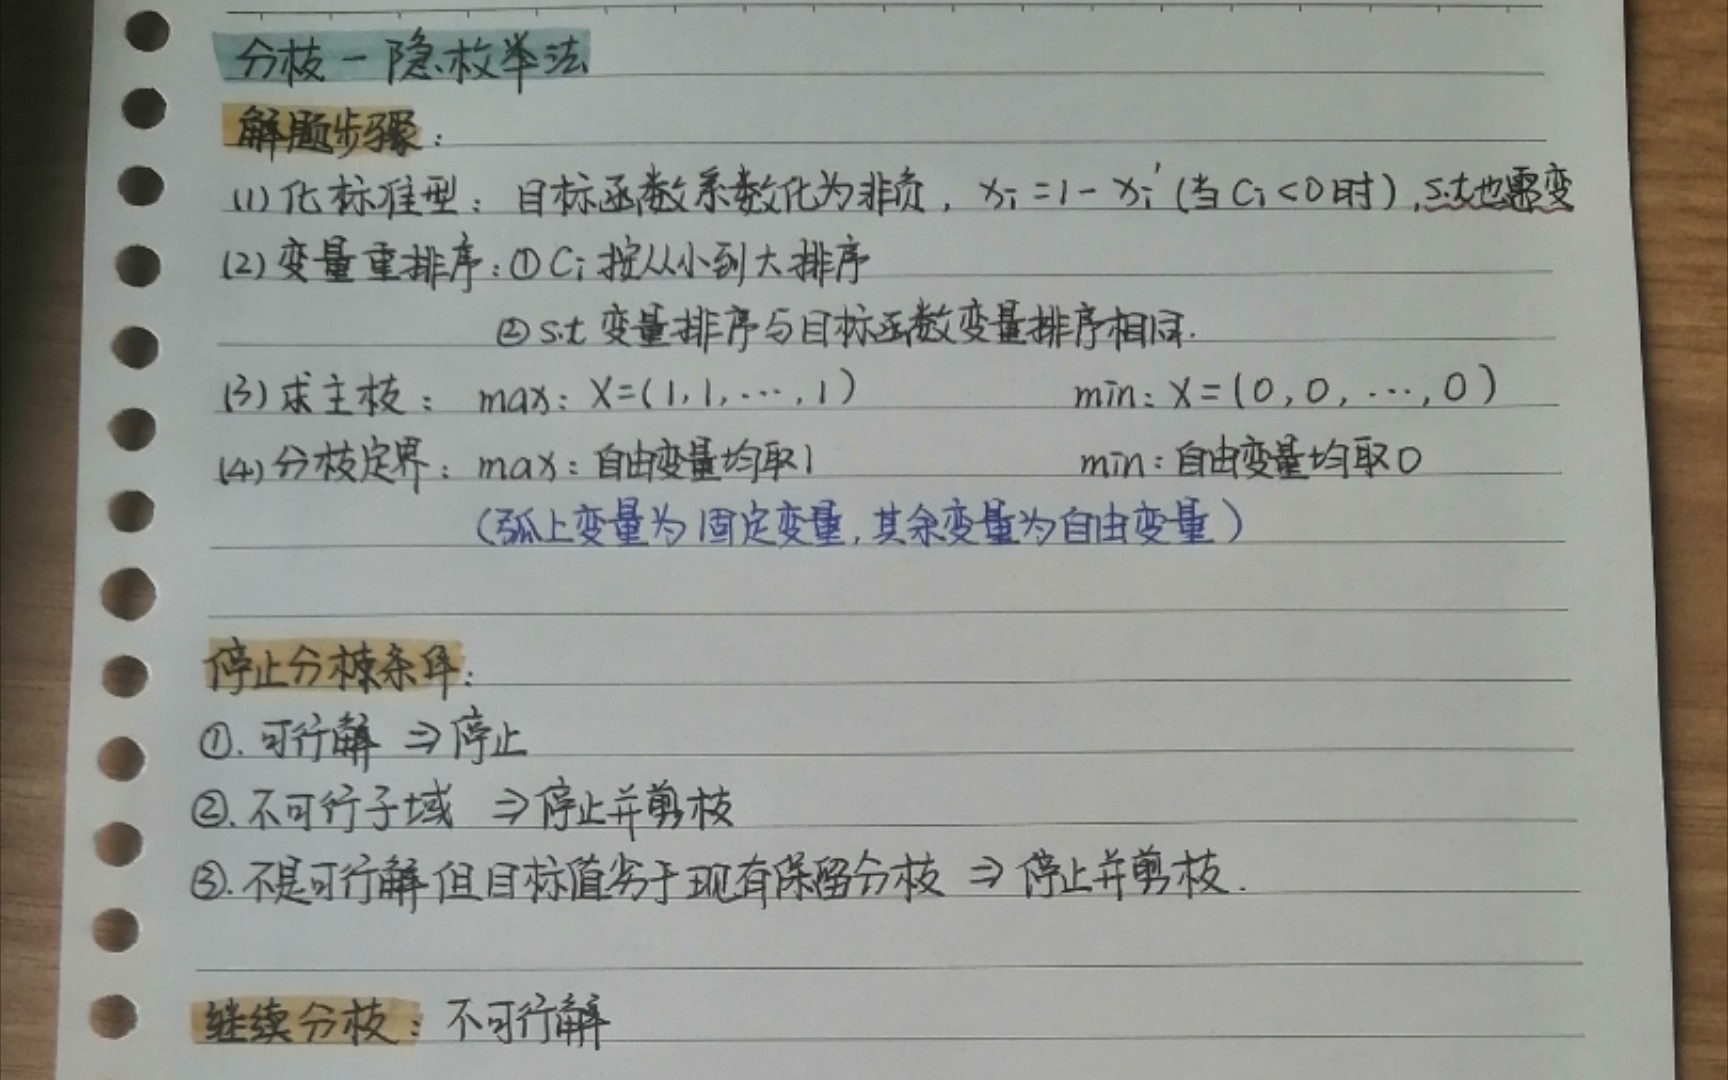 分枝-隐枚举法
解题步骤：
(1)化标准型：目标函数系数化为非负，xi=1-xi'(当Ci<0时)，s.t也需变
(2)变量重排序：①Ci按从小到大排序
②s.t变量排序与目标函数变量排序相同.
(3)求主枝：max：X=(1,1,…,1) min：X=(0,0,…,0)
(4)分枝定界：max：自由变量均取1 min：自由变量均取0
(弧上变量为固定变量，其余变量为自由变量)
停止分枝条件：
①.可行解⇒停止
②.不可行子域⇒停止并剪枝
③.不是可行解但目标值劣于现有保留分枝⇒停止并剪枝.
继续分枝：不可行解